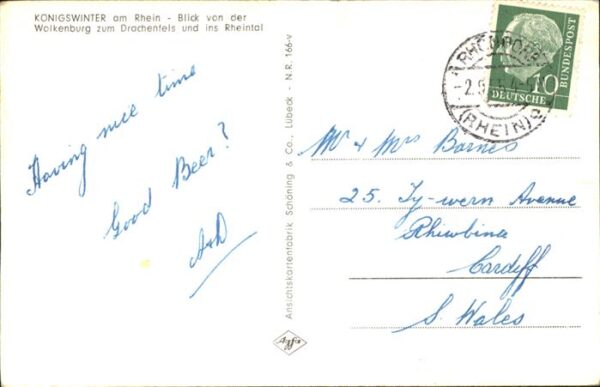 KÖNIGSWINTER am Rhein - Blick von der
Wolkenburg zum Drachenfels und ins Rheintal
Having nice time
Good Beer?
Ansichtskartenfabrik Schöning & Co., Lübeck - N.R. 166-v
Agfa
DEUTSCHE
10
BUNDESPOST
(RHEIN)
Mr & Mrs Barnes
25. Ty-wern Avenue
Rhiwbina
Cardiff
S. Wales